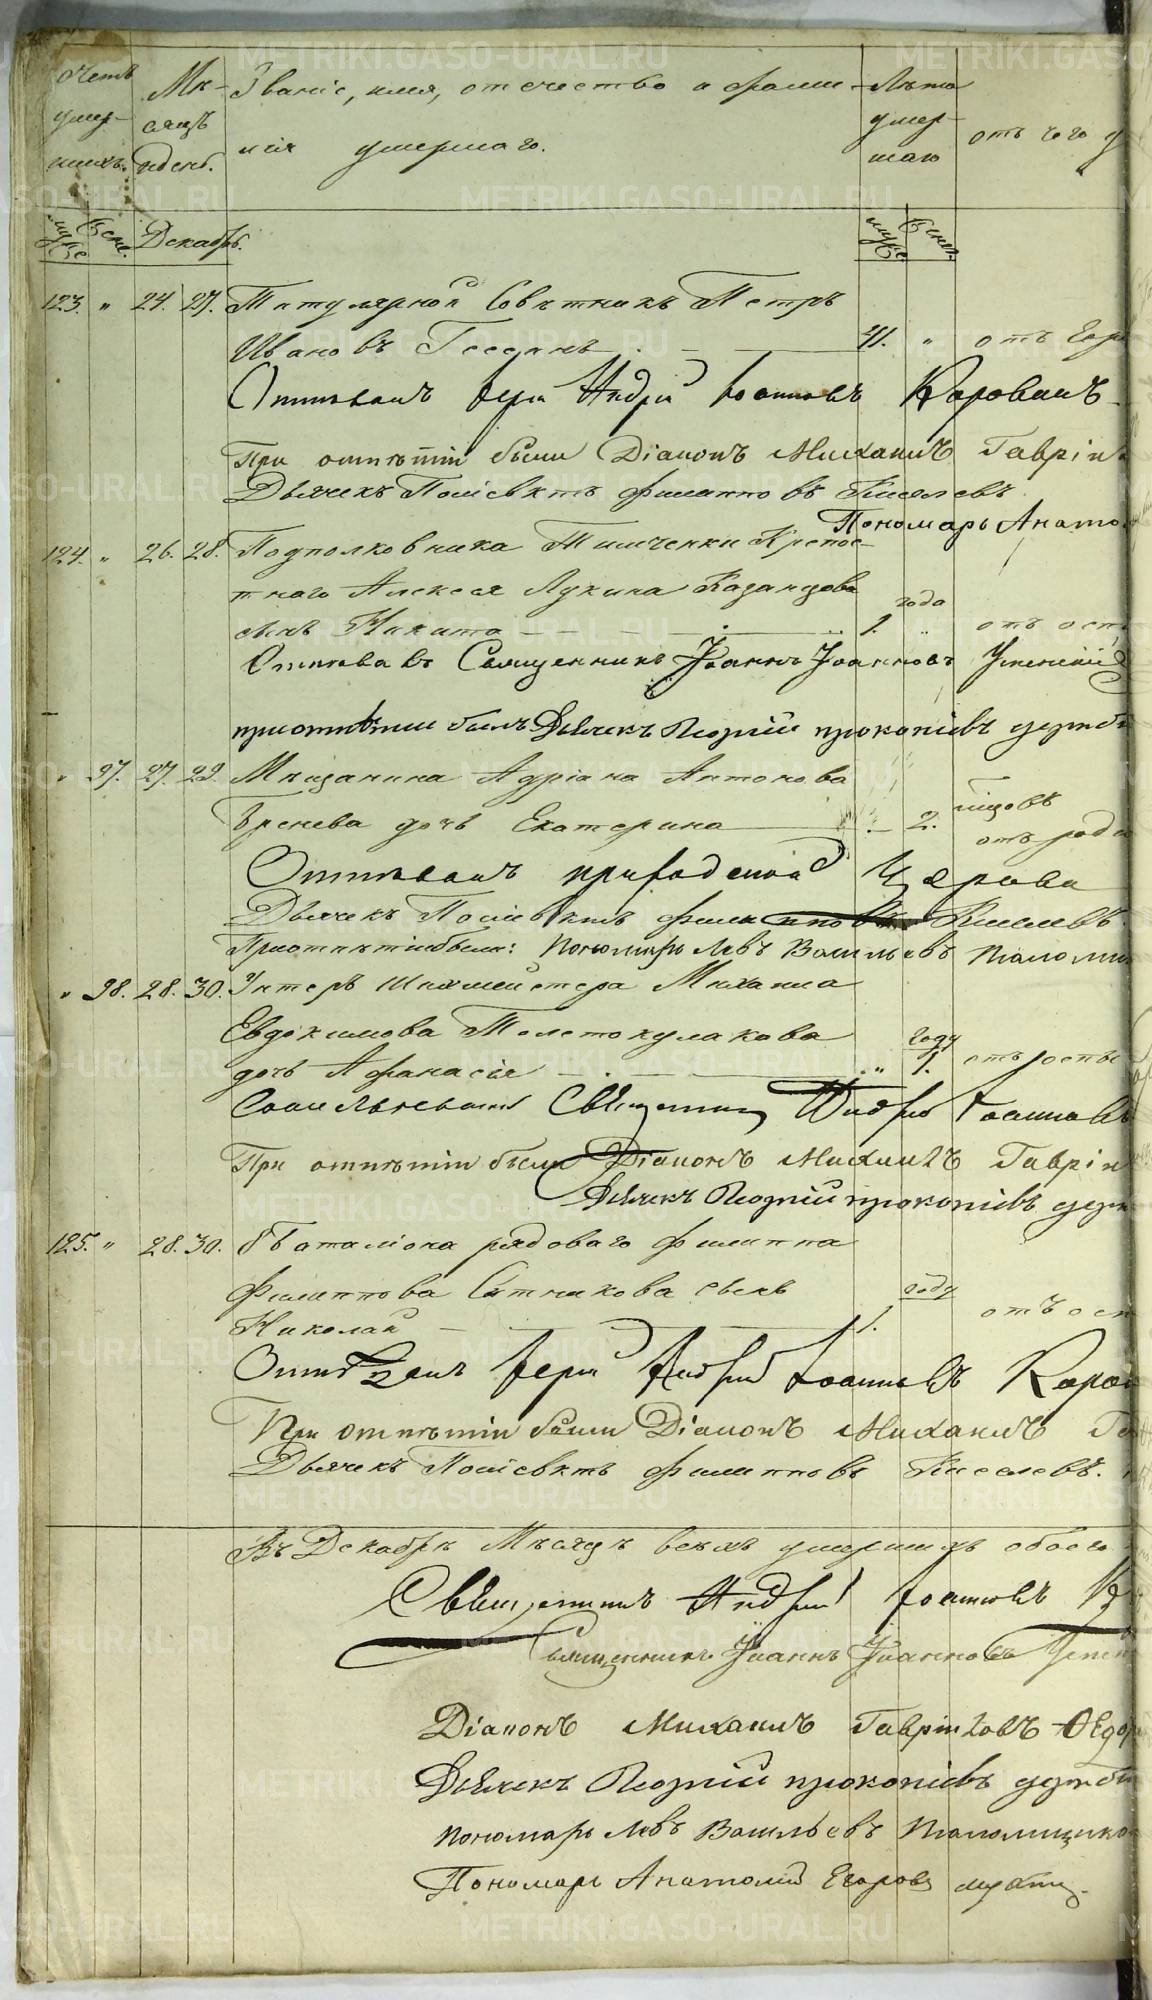 Счетъ умер- шихъ.
Мѣ- сяцъ и день.
Званіе, имя, отчество и фами-
лія умершаго.
Лѣта умер- шаго
отъ чего у
муже Жене. Декабрь. муже Женс.
123. " 24. 27. Титулярной Совѣтникъ Петръ
Ивановъ Гссданъ 41. " отъ Горя
Отпѣвалъ Іерей Андрей Іоанновъ Коровинъ
При отпѣтіи были Діаконъ Михаилъ Гаврiи
Дьячекъ Поліевктъ Филипповъ Киселевъ
Пономарь Анато
124. " 26. 28. Подполковника Тимченки Крепос-
тнаго Алексея Лукина Казанцова
сынъ Никита года 1. " отъ осп
Отпѣвалъ Священникъ Іоаннъ Іоанновъ
приотпѣтіи былъ Дьячекъ Георгій прокопіевъ
" 97. 27. 29. Мѣщанина Адріана Антонова
Бренева дочь Екатерина " 2. отъ роди
Отпѣвалъ
Дьячекъ Поліевктъ Филипповъ Киселевъ.
Приотпѣтіибыли: Пономарь Левъ Васильевъ
" 98. 28. 30. Унтеръ Шихтмейстера Михаила
Евдокимова Толстокулакова
дочь Афанасія году " 1. отъ
Священникъ Андрей Іоанновъ
При отпѣтіи были Діаконъ Михаилъ Гаврiи
Дьячекъ Георгій прокопіевъ
125. " 28. 30. Баталіона рядоваго Филиппа
Филиппова Ситникова сынъ
Николай году 1. отъ осп
Отпѣвалъ Іерей Андрей Іоанновъ Коров
При отпѣтіи были Діаконъ Михаилъ Га
Дьячекъ Поліевктъ Филипповъ Киселевъ.
Въ Декабрѣ Мѣсяцѣ всѣхъ умершихъ обоего
Священникъ Андрей Іоанновъ К
Священникъ Іоаннъ Іоанновъ
Діаконъ Михаилъ Гавріиловъ Ѳедо
Дьячекъ Георгій прокопіевъ
Пономарь Левъ Васильевъ
Пономарь Анатолій Егоровъ
METRIKI.GASO-URAL.RU